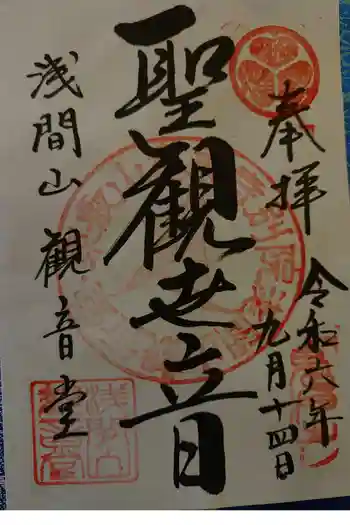 奉拝
令和六年
九月十四日
聖観世音
浅間山 観音堂